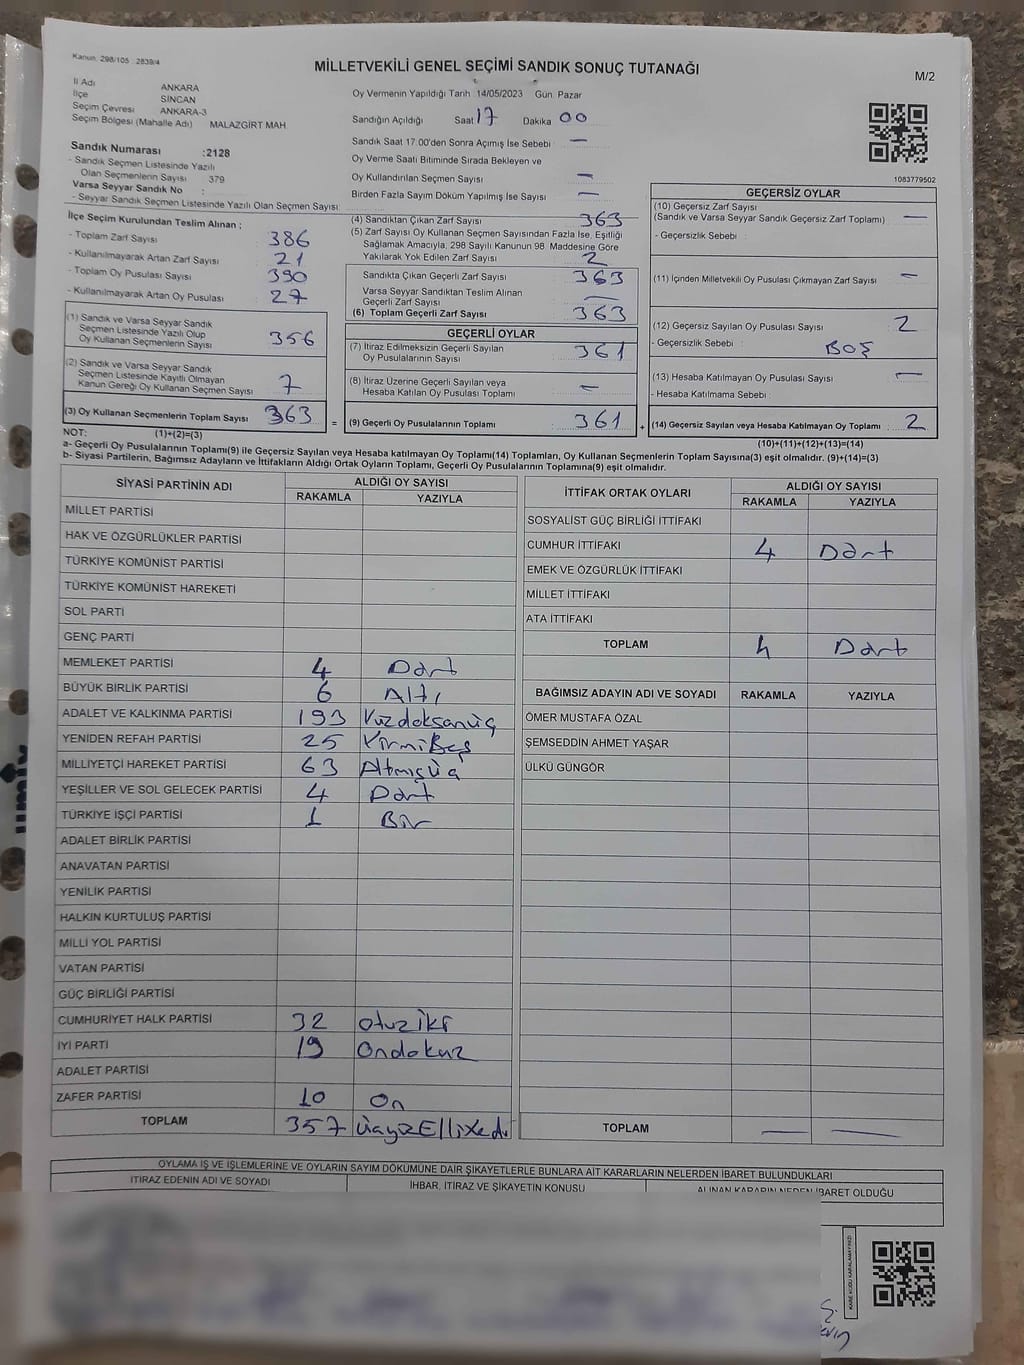 Kanun: 298/105 : 2839/4
MİLLETVEKİLİ GENEL SEÇİMİ SANDIK SONUÇ TUTANAĞI
M/2
İl Adı ANKARA
İlçe SİNCAN
Seçim Çevresi ANKARA-3
Seçim Bölgesi (Mahalle Adı) MALAZGİRT MAH
Sandık Numarası :2128
- Sandık Seçmen Listesinde Yazılı
Olan Seçmenlerin Sayısı 379
Varsa Seyyar Sandık No :
- Seyyar Sandık Seçmen Listesinde Yazılı Olan Seçmen Sayısı:
Oy Vermenin Yapıldığı Tarih : 14/05/2023 Gün: Pazar
Sandığın Açıldığı Saat 17 Dakika 00
Sandık Saat 17.00'den Sonra Açımış İse Sebebi : —
Oy Verme Saati Bitiminde Sırada Bekleyen ve
Oy Kullandırılan Seçmen Sayısı : —
Birden Fazla Sayım Döküm Yapılmış İse Sayısı : —
1083779502
İlçe Seçim Kurulundan Teslim Alınan ;
- Toplam Zarf Sayısı : 386
- Kullanılmayarak Artan Zarf Sayısı : 21
- Toplam Oy Pusulası Sayısı : 390
- Kullanılmayarak Artan Oy Pusulası : 27
(1) Sandık ve Varsa Seyyar Sandık
Seçmen Listesinde Yazılı Olup
Oy Kullanan Seçmenlerin Sayısı : 356
(2) Sandık ve Varsa Seyyar Sandık
Seçmen Listesinde Kayıtlı Olmayan
Kanun Gereği Oy Kullanan Seçmen Sayısı : 7
(3) Oy Kullanan Seçmenlerin Toplam Sayısı : 363
(1)+(2)=(3)
(4) Sandıktan Çıkan Zarf Sayısı : 363
(5) Zarf Sayısı Oy Kullanan Seçmen Sayısından Fazla İse, Eşitliği
Sağlamak Amacıyla, 298 Sayılı Kanunun 98. Maddesine Göre
Yakılarak Yok Edilen Zarf Sayısı : 2
Sandıkta Çıkan Geçerli Zarf Sayısı : 363
Varsa Seyyar Sandıktan Teslim Alınan
Geçerli Zarf Sayısı : —
(6) Toplam Geçerli Zarf Sayısı : 363
GEÇERLİ OYLAR
(7) İtiraz Edilmeksizin Geçerli Sayılan
Oy Pusulalarının Sayısı : 361
(8) İtiraz Üzerine Geçerli Sayılan veya
Hesaba Katılan Oy Pusulası Toplamı : —
= (9) Geçerli Oy Pusulalarının Toplamı : 361 +
GEÇERSİZ OYLAR
(10) Geçersiz Zarf Sayısı :
(Sandık ve Varsa Seyyar Sandık Geçersiz Zarf Toplamı) —
- Geçersizlik Sebebi :
(11) İçinden Milletvekili Oy Pusulası Çıkmayan Zarf Sayısı : —
(12) Geçersiz Sayılan Oy Pusulası Sayısı : 2
- Geçersizlik Sebebi : BOŞ
(13) Hesaba Katılmayan Oy Pusulası Sayısı : —
- Hesaba Katılmama Sebebi :
(14) Geçersiz Sayılan veya Hesaba Katılmayan Oy Toplamı : 2
(10)+(11)+(12)+(13)=(14)
NOT:
a- Geçerli Oy Pusulalarının Toplamı(9) ile Geçersiz Sayılan veya Hesaba katılmayan Oy Toplamı(14) Toplamları, Oy Kullanan Seçmenlerin Toplam Sayısına(3) eşit olmalıdır. (9)+(14)=(3)
b- Siyasi Partilerin, Bağımsız Adayların ve İttifakların Aldığı Ortak Oyların Toplamı, Geçerli Oy Pusulalarının Toplamına(9) eşit olmalıdır.
SİYASİ PARTİNİN ADI ALDIĞI OY SAYISI
RAKAMLA YAZIYLA
MİLLET PARTİSİ
HAK VE ÖZGÜRLÜKLER PARTİSİ
TÜRKİYE KOMÜNİST PARTİSİ
TÜRKİYE KOMÜNİST HAREKETİ
SOL PARTİ
GENÇ PARTİ
MEMLEKET PARTİSİ 4 Dört
BÜYÜK BİRLİK PARTİSİ 6 Altı
ADALET VE KALKINMA PARTİSİ 193 Yüzdoksanüç
YENİDEN REFAH PARTİSİ 25 YirmiBeş
MİLLİYETÇİ HAREKET PARTİSİ 63 Altmışüç
YEŞİLLER VE SOL GELECEK PARTİSİ 4 Dört
TÜRKİYE İŞÇİ PARTİSİ 1 Bir
ADALET BİRLİK PARTİSİ
ANAVATAN PARTİSİ
YENİLİK PARTİSİ
HALKIN KURTULUŞ PARTİSİ
MİLLİ YOL PARTİSİ
VATAN PARTİSİ
GÜÇ BİRLİĞİ PARTİSİ
CUMHURİYET HALK PARTİSİ 32 otuziki
İYİ PARTİ 19 Ondokuz
ADALET PARTİSİ
ZAFER PARTİSİ 10 On
TOPLAM 357 ÜçyüzElliYedi
İTTİFAK ORTAK OYLARI ALDIĞI OY SAYISI
RAKAMLA YAZIYLA
SOSYALİST GÜÇ BİRLİĞİ İTTİFAKI
CUMHUR İTTİFAKI 4 Dört
EMEK VE ÖZGÜRLÜK İTTİFAKI
MİLLET İTTİFAKI
ATA İTTİFAKI
TOPLAM 4 Dört
BAĞIMSIZ ADAYIN ADI VE SOYADI RAKAMLA YAZIYLA
ÖMER MUSTAFA ÖZAL
ŞEMSEDDİN AHMET YAŞAR
ÜLKÜ GÜNGÖR
TOPLAM — —
OYLAMA İŞ VE İŞLEMLERİNE VE OYLARIN SAYIM DÖKÜMÜNE DAİR ŞİKAYETLERLE BUNLARA AİT KARARLARIN NELERDEN İBARET BULUNDUKLARI
İTİRAZ EDENİN ADI VE SOYADI İHBAR, İTİRAZ VE ŞİKAYETİN KONUSU ALINAN KARARIN NEDEN İBARET OLDUĞU
KARE KODU KARALAMAYINIZ!